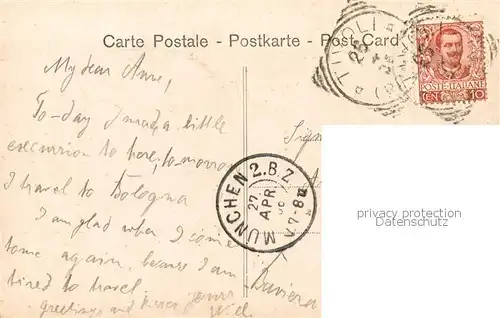 Carte Postale - Postkarte - Post Card
TIVOLI
25
POSTE ITALIANE
CEN 10
My dear Anne,
To-day I made a little
excursion to here, to-morrow
I travel to Bologna
I am glad when I come
home again, because I am
tired to travel.
greetings and kisses yours
Signa
MÜNCHEN 2.B.Z.
27.
APR.
V.7-8
Baviera
privacy protection
www.